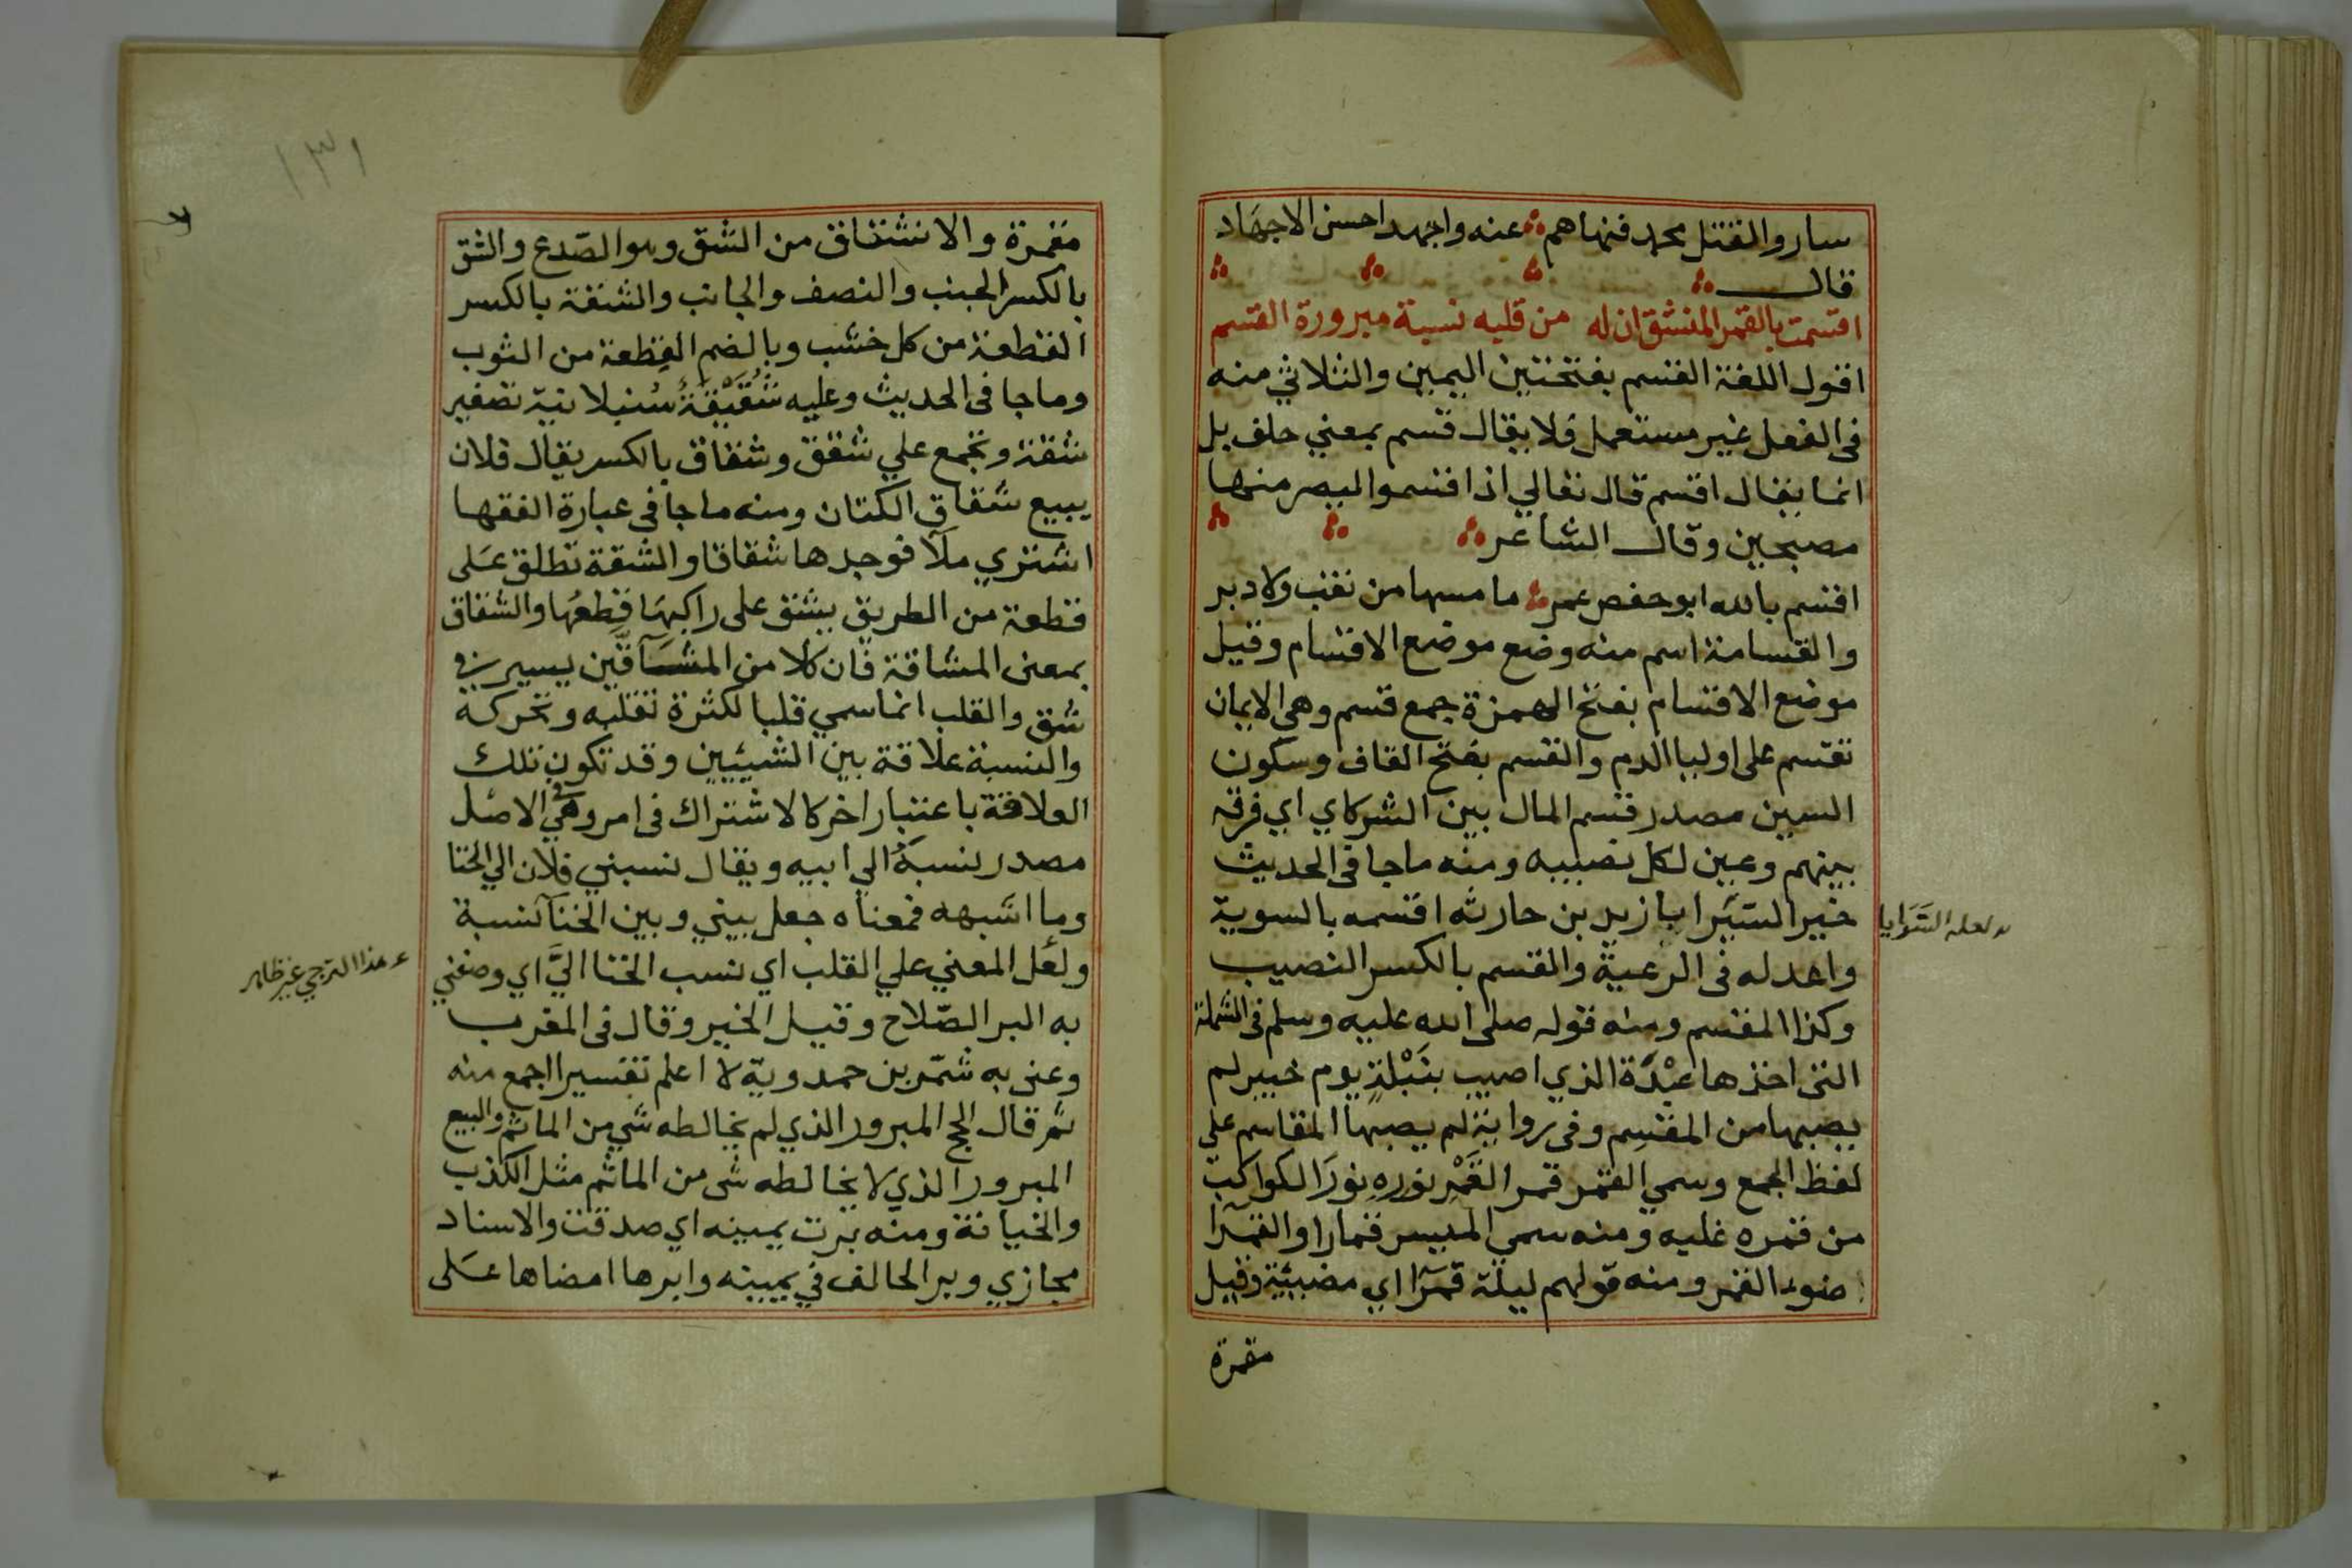 ساروا لقتل محمد فنهاهم عنه واجهد احسن الاجهاد
قال
اقسمت بالقمر المنشق ان له من قلبه نسبة مبرورة القسم
اقول اللغة القسم بفتحتين اليمين والثلاثي منه
في الفعل غير مستعمل فلا يقال قسم بمعني حلف بل
انما يقال اقسم قال تعالي اذ اقسموا ليصرمنها
مصبحين وقال الشاعر
اقسم بالله ابو حفص عمر ما مسها من نقب ولا دبر
والقسامة اسم منه وضع موضع الاقسام وقيل
موضع الاقسام بفتح الهمزة جمع قسم وهي الايمان
تقسم على اوليا الدم والقسم بفتح القاف وسكون
السين مصدر قسم المال بين الشركاي اي فرقه
بينهم وعين لكل نصيبه ومنه ما جا في الحديث
خير السَّيَرايا زيد بن حارثه اقسمه بالسوية
لعله السَّرَايا
واعدله في الرعية والقسم بالكسر النصيب
وكذا المقسم ومنه قوله صلى الله عليه وسلم في الشملة
التي اخذها عَبْدَة الذي اصيب بنَبْلةٍ يوم خيبر لم
يصبها من المقسم وفي رواية لم يصبها المقاسم علي
لفظ الجمع وسمي القمر قمر القَمْرِ نورهِ نورَ الكواكب
من قمره غلبه ومنه سمي الميسر قمارا والقمرآ
ضوء القمر ومنه قولهم ليلة قمرآ اي مضيئة وقيل
مقمرة
١٣١
مقمرة والانشقاق من الشق وهو الصّدع والشق
بالكسر الجنب والنصف والجانب والشقة بالكسر
القطعة من كل خشب وبالضم القِطعة من الثوب
وما جا في الحديث وعليه شُقَيْقَةٌ سُنبلانيّة تصغير
شقة وتجمع علي شقق وشقاق بالكسر يقال فلان
يبيع شقاق الكتان ومنه ما جا في عبارة الفقها
اشتري ملآ فوجدها شقاقا والشقة تطلق عَلى
قطعة من الطريق يشق على راكبهَا قِطعُهَا والشقاق
بمعنى المشاقة فان كلا من المشآقّين يسير في
شق والقلب انما سمي قلبا لكثرة تقلبه وتحركه
والنسبة علاقة بين الشيئين وقد تكون تلك
العلاقة باعتبار اخر كالاشتراك في امر وهي في الاصل
مصدر نسبهُ الي ابيه ويقال نسبني فلان الي الخنا
وما اشبهه فمعناه جعل بيني وبين الخنآ نسبة
ولعَل المعني علي القلب اي نسب الخنا اليَّ اي وصفني
هذا الترجي غير ظاهر
به البر الصّلاح وقيل الخير وقال في المغرب
وعنى به شمّر بن حمدويّه لا اعلم تفسيرا اجمع منه
ثمر قال الحج المبرور الذي لم يخالطه شي من الماثم والبيع
المبرور الذي لا يخالطه شي من الماثم مثل الكذب
والخيانة ومنه برت يمينه اي صدقت والاسناد
مجازي وبر الحالف في يمينه وابرها امضاها عَلى